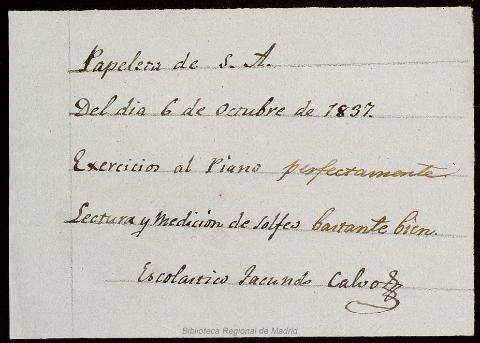 Papeleta de S. A.
Del dia 6 de Octubre de 1837.
Exercicios al Piano perfectamente
Lectura y Medición de Solfeo bastante bien.
Escolastico Facundo Calvo
Biblioteca Regional de Madrid